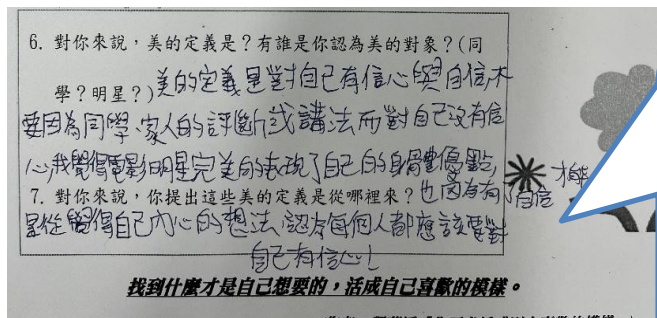 6. 對你來說，美的定義是？有誰是你認為美的對象？(同
學？明星？)美的定義是對自己有信心與自信,不
要因為同學、家人的評斷或講法而對自己沒有信
心,我覺得電影明星完美的表現了自己的身體優點,
7. 對你來說，你提出這些美的定義是從哪裡來？也因為有了自信
是從覺得自己內心的想法,認為每個人都應該要對
自己有信心
找到什麼才是自己想要的，活成自己喜歡的模樣。